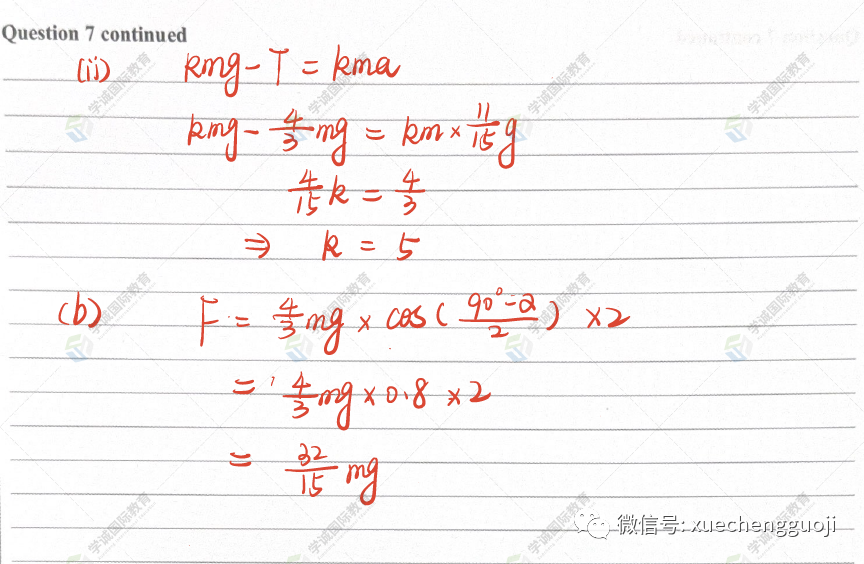 Question 7 continued
(ii) kmg - T = kma
kmg - 4/3 mg = km × 11/15 g
4/15 k = 4/3
⇒ k = 5
(b) F = 4/3 mg × cos( (90° - α)/2 ) × 2
= 4/3 mg × 0.8 × 2
= 32/15 mg
微信号: xuechengguoji
学诚国际教育